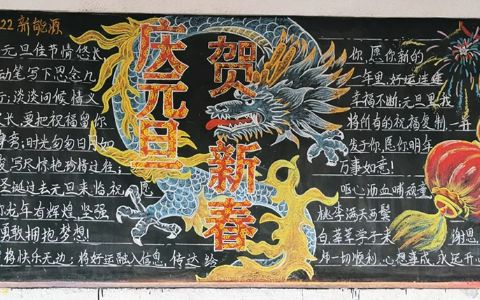 22新能源
元旦佳节情悠长
动笔写下思念几
淡淡问候情义
长 要把祝福留你
身旁:时光匆匆日月如
写尽艳
圣诞过去元旦来临,祝 愿
你 九年有辉煌 坚强
勇敢拥抱梦想!
将快乐无边;将好运融入信息,传达给
庆元旦
贺新春
你,愿你新的
一年里 好运连连
幸福不断;元旦里我
将所有的祝福复制 一并
发于你 愿你明年
万事如意!
呕心沥血哺顽童
桃李满天两鬓
白 莘莘学子来 谢恩
一切顺利,心想事成,永远开心